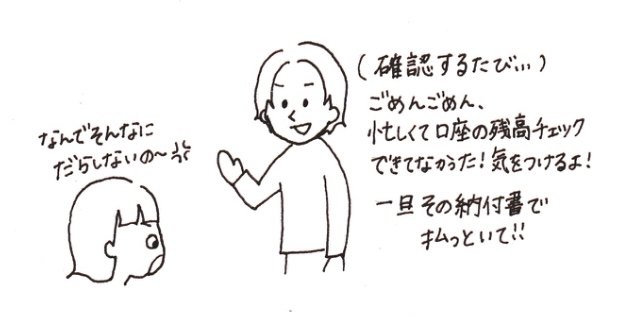 (確認するたび…)
ごめんごめん、
忙しくて口座の残高チェック
できてなかった!気をつけるよ!
一旦その納付書で
払っといて!!
なんでそんなに
だらしないの〜